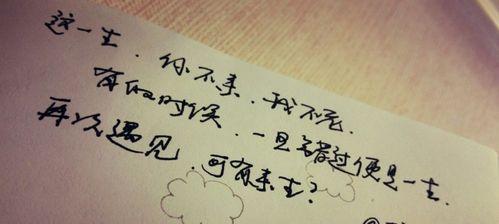 这一生．你不来．我不老．
有的时候．一旦错过便是一生．
再次遇见．可有来生？